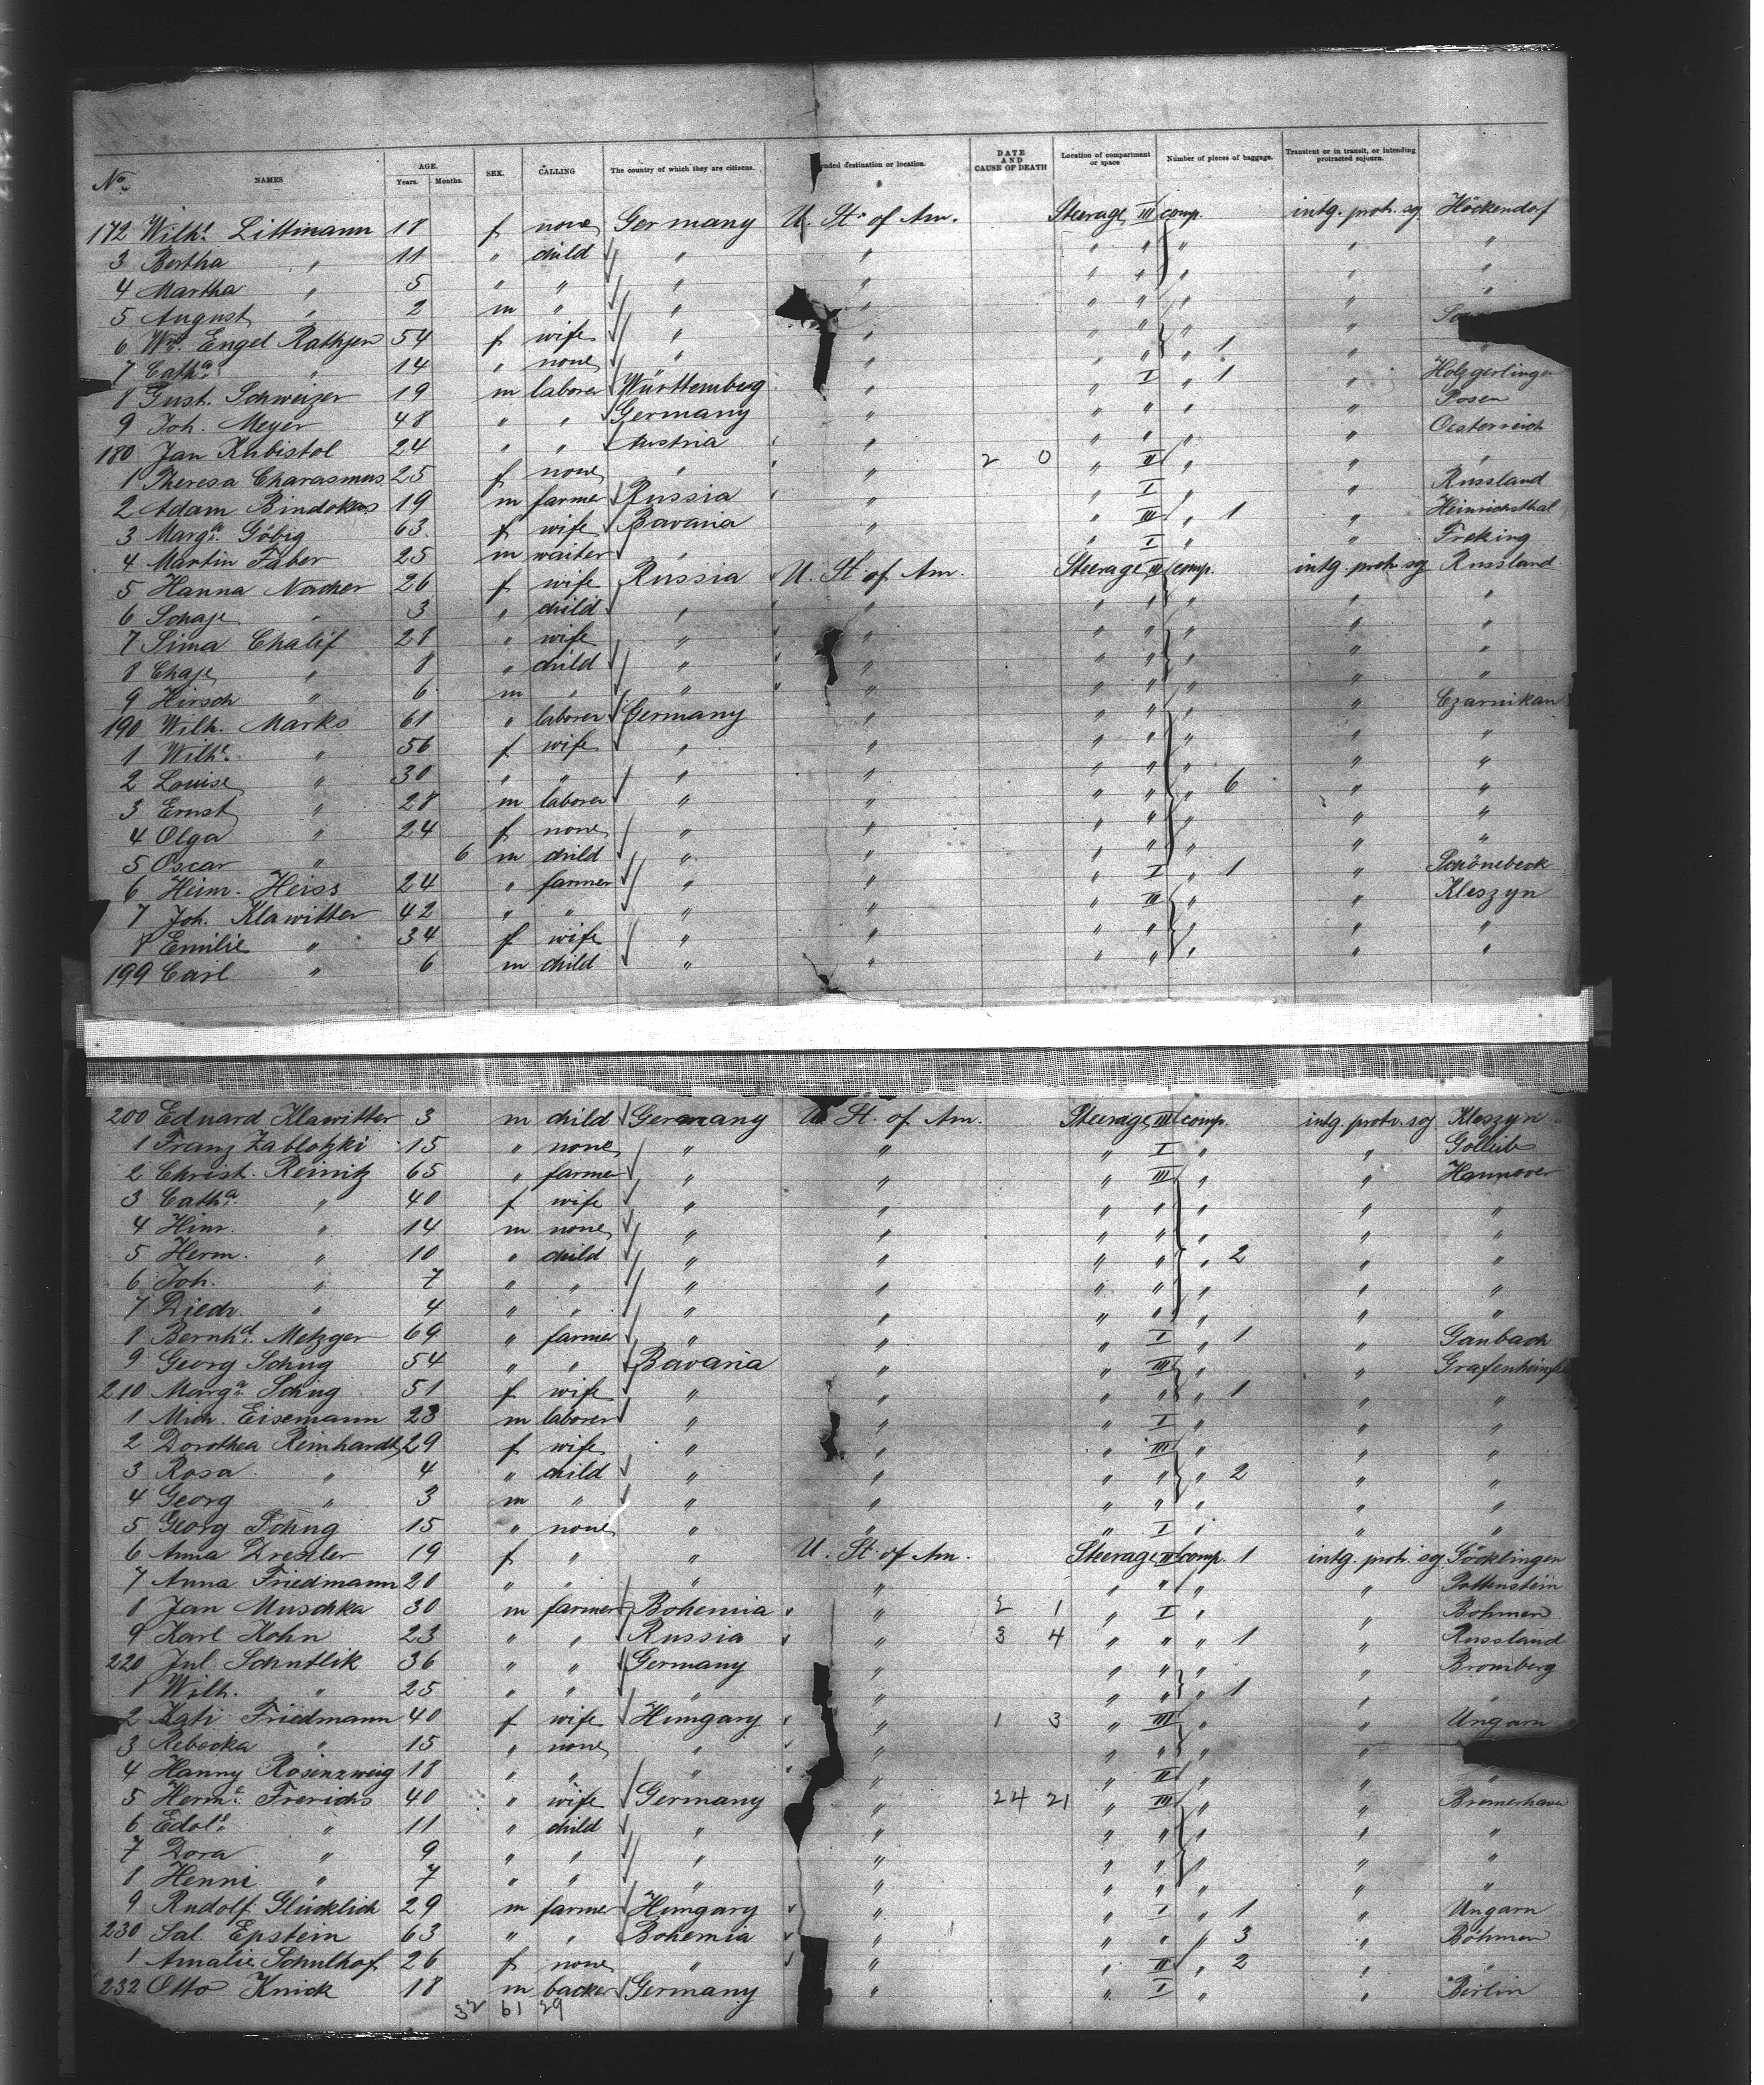 No. NAMES AGE. Years. Months. SEX. CALLING The country of which they are citizens. nded destination or location. DATE AND CAUSE OF DEATH Location of compartment or space Number of pieces of baggage. Transient or in transit, or intending protracted sojourn.
172 Wilhe. Littmann 18 f none Germany U. St. of Am. Steerage III comp. intg. protr. sg Höckendorf
3 Bertha " 11 " child " " " " " " "
4 Martha " 5 " " " " " " " " "
5 August " 2 m " " " " " " " "
6 Engel Rathjen 54 f wife " " " " " "
7 Catha. " 14 " none " " " " " 1 " "
8 Gust. Schweizer 19 m laborer Württemberg " " I " 1 " Holzgerlingen
9 Joh. Meyer 48 " " Germany " " " " " Posen
180 Jan Kubistol 24 " " Austria " " " " " Oesterreich
1 Theresa Charasmus 25 f none " " 2 0 " II " " "
2 Adam Bindokas 19 m farmer Russia " " I " " Russland
3 Marga. Göbig 63 f wife Bavaria " " III " 1 " Heinrichsthal
4 Martin Faber 25 m waiter " " " I " " Freking
5 Hanna Nacher 26 f wife Russia U. St. of Am. Steerage III comp. intg. protr. sg Russland
6 Schaje " 3 " child " " " " " " "
7 Sima Chalif 28 " wife " " " " " " "
8 Chaje " 8 " child " " " " " " "
9 Hirsch " 6 m " " " " " " " "
190 Wilh. Marks 61 " laborer Germany " " " " " Czarnikau
1 Wilhe. " 56 f wife " " " " " " "
2 Louise " 30 " " " " " " " " "
3 Ernst " 28 m laborer " " " " " 6 " "
4 Olga " 24 f none " " " " " " "
5 Oscar " 6 m child " " " " " " "
6 Heinr. Heiss 24 " farmer " " " I " 1 " Schönebeck
7 Joh. Klawitter 42 " " " " " III " " Kleszyn
8 Emilie " 34 f wife " " " " " " "
199 Carl " 6 m child " " " " " " "
200 Eduard Klawitter 3 m child Germany U. St. of Am. Steerage III comp. intg. protr. sg Kleszyn
1 Franz Zablotzki 15 " none " " " I " " Gollub
2 Christ. Reinitz 65 " farmer " " " III " " Hannover
3 Catha. " 40 f wife " " " " " " "
4 Hinr. " 14 m none " " " " " " "
5 Herm. " 10 " child " " " " " 2 " "
6 Joh. " 7 " " " " " " " " "
7 Diedr. " 4 " " " " " " " " "
8 Bernhd. Metzger 69 " farmer " " " I " 1 " Ganbach
9 Georg Schug 54 " " Bavaria " " III " " Grafenheinfeld
210 Marga. Schug 51 f wife " " " " " 1 " "
1 Mich. Eisemann 23 m laborer " " " I " " "
2 Dorothea Reinhardt 29 f wife " " " III " " "
3 Rosa " 4 " child " " " " " 2 " "
4 Georg " 3 m " " " " " " " "
5 Georg Schug 15 " none " " " I " " "
6 Anna Dressler 19 f " " U. St. of Am. Steerage II comp. 1 intg. protr. sg Göcklingen
7 Anna Friedmann 20 " " " " " " " " Pottenstein
8 Jan Muschka 30 m farmer Bohemia " 2 1 " I " " Böhmen
9 Karl Kohn 23 " " Russia " 3 4 " " " 1 " Russland
220 Jul. Schutlik 36 " " Germany " " " " " Bromberg
1 Wilh. " 25 " " " " " " " 1 " "
2 Kati Friedmann 40 f wife Hungary " 1 3 " III " " Ungarn
3 Rebecka " 15 " none " " " " " "
4 Hanny Rosenzweig 18 " " " " " II " " "
5 Herme. Frerichs 40 " wife Germany " 24 21 " III " " Bremerhaven
6 Edole. " 11 " child " " " " " " "
7 Dora " 9 " " " " " " " " "
8 Henni " 7 " " " " " " " " "
9 Rudolf Glücklich 29 m farmer Hungary " " I " 1 " Ungarn
230 Sal. Epstein 63 " " Bohemia " " " " 3 " Böhmen
1 Amalie Schulhof 26 f none " " " II " 2 " "
232 Otto Knick 18 m backer Germany " " I " " Berlin
32 61 29